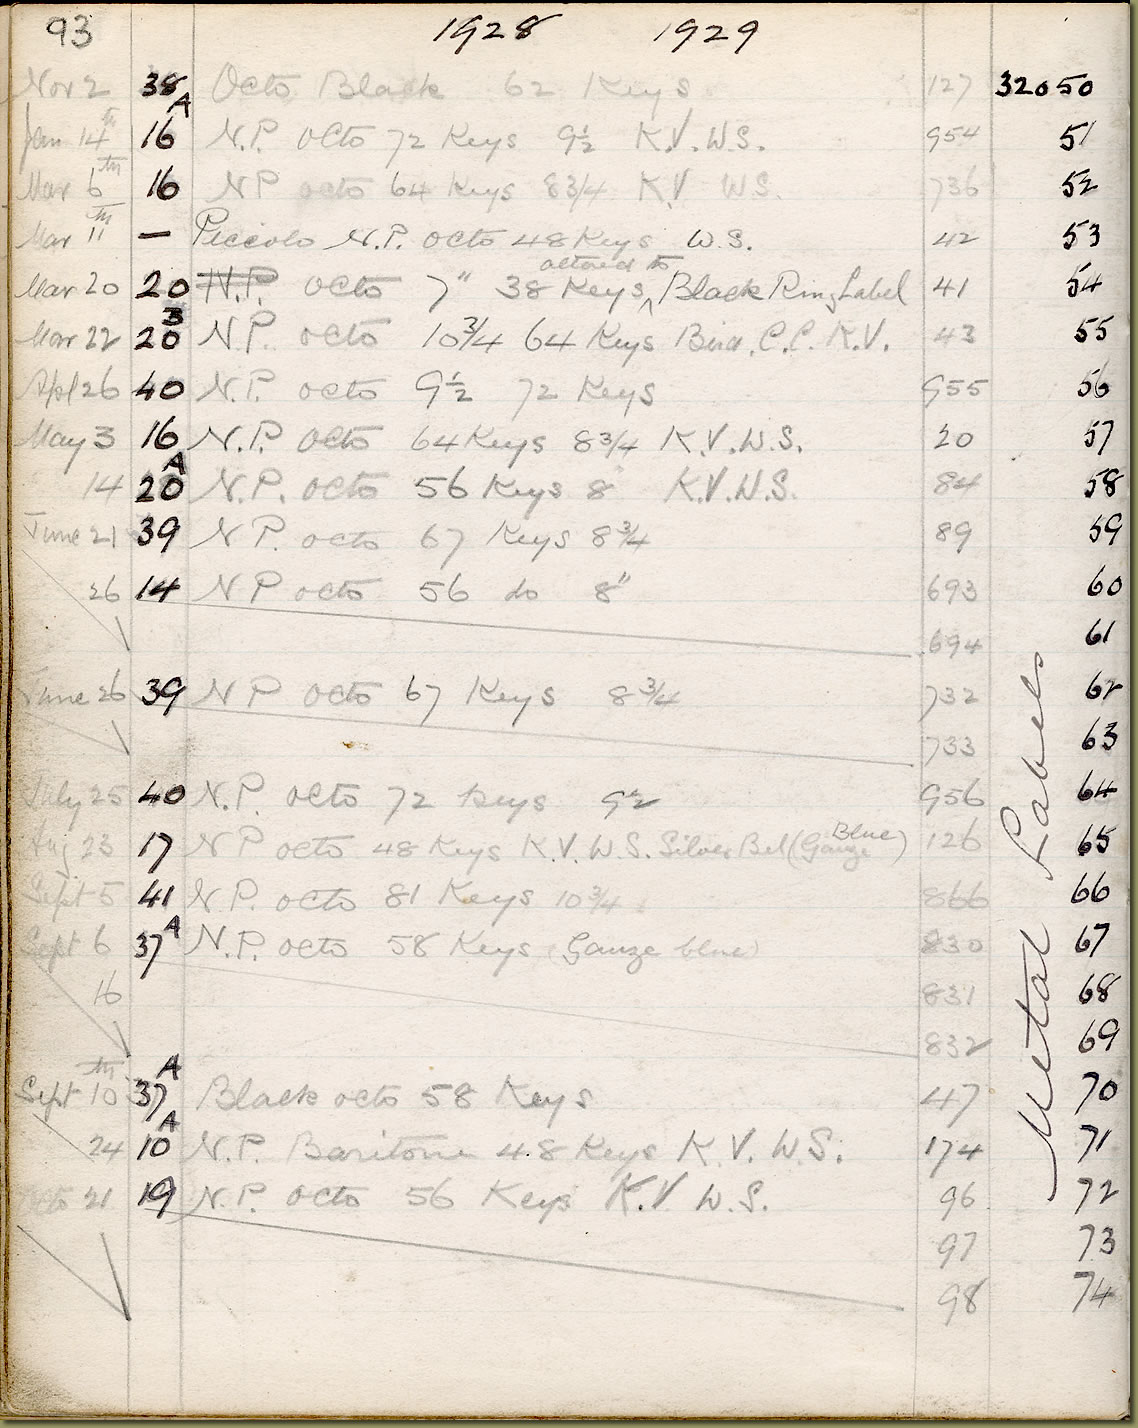 93 1928 1929
Nov 2 38 Octo Black 62 Keys 127 32050
Jan 14th 16A N.P. octo 72 Keys 9½ K.V. W.S. 954 51
Mar 6th 16 N P octo 64 Keys 8¾ K V W S. 736 52
Mar 11th — Piccolo N.P. octo 48 Keys W.S. 42 53
altered to
Mar 20 20 N.P. octo 7" 38 Keys ^ Black Ring Label 41 54
Mar 22 20B N.P. octo 10¾ 64 Keys C.C. K.V. 43 55
Apl 26 40 N.P. octo 9½ 72 Keys 955 56
May 3 16 N.P. octo 64 Keys 8¾ K.V. W.S. 20 57
14 20A N.P. octo 56 Keys 8" K.V. W.S. 84 58
June 21 39 N P. octo 67 Keys 8¾ 89 59
26 14 N P octo 56 do 8" 693 60
694 61
June 26 39 N P octo 67 Keys 8¾ 732 62
733 63
July 25 40 N.P. octo 72 keys 9½ 956 64
Aug 23 17 N P octo 48 Keys K.V. W.S. Silver Bel (Blue Gauze) 126 65
Sept 5 41 N P. octo 81 Keys 10¾ 866 66
Sept 6 37A N.P. octo 58 Keys (Gauze blue) 830 67
16 831 68
832 69
Sept 10th 37A Black octo 58 Keys 47 70
24 10A N.P. Baritone 48 Keys K.V. W.S. 174 71
Octo 21 19 N.P. octo 56 Keys K.V W.S. 96 72
97 73
98 74
Metal Labels